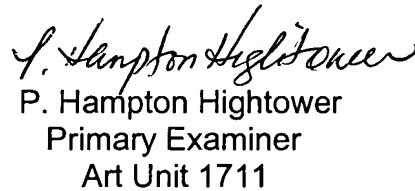 P. Hampton Hightower
P. Hampton Hightower
Primary Examiner
Art Unit 1711